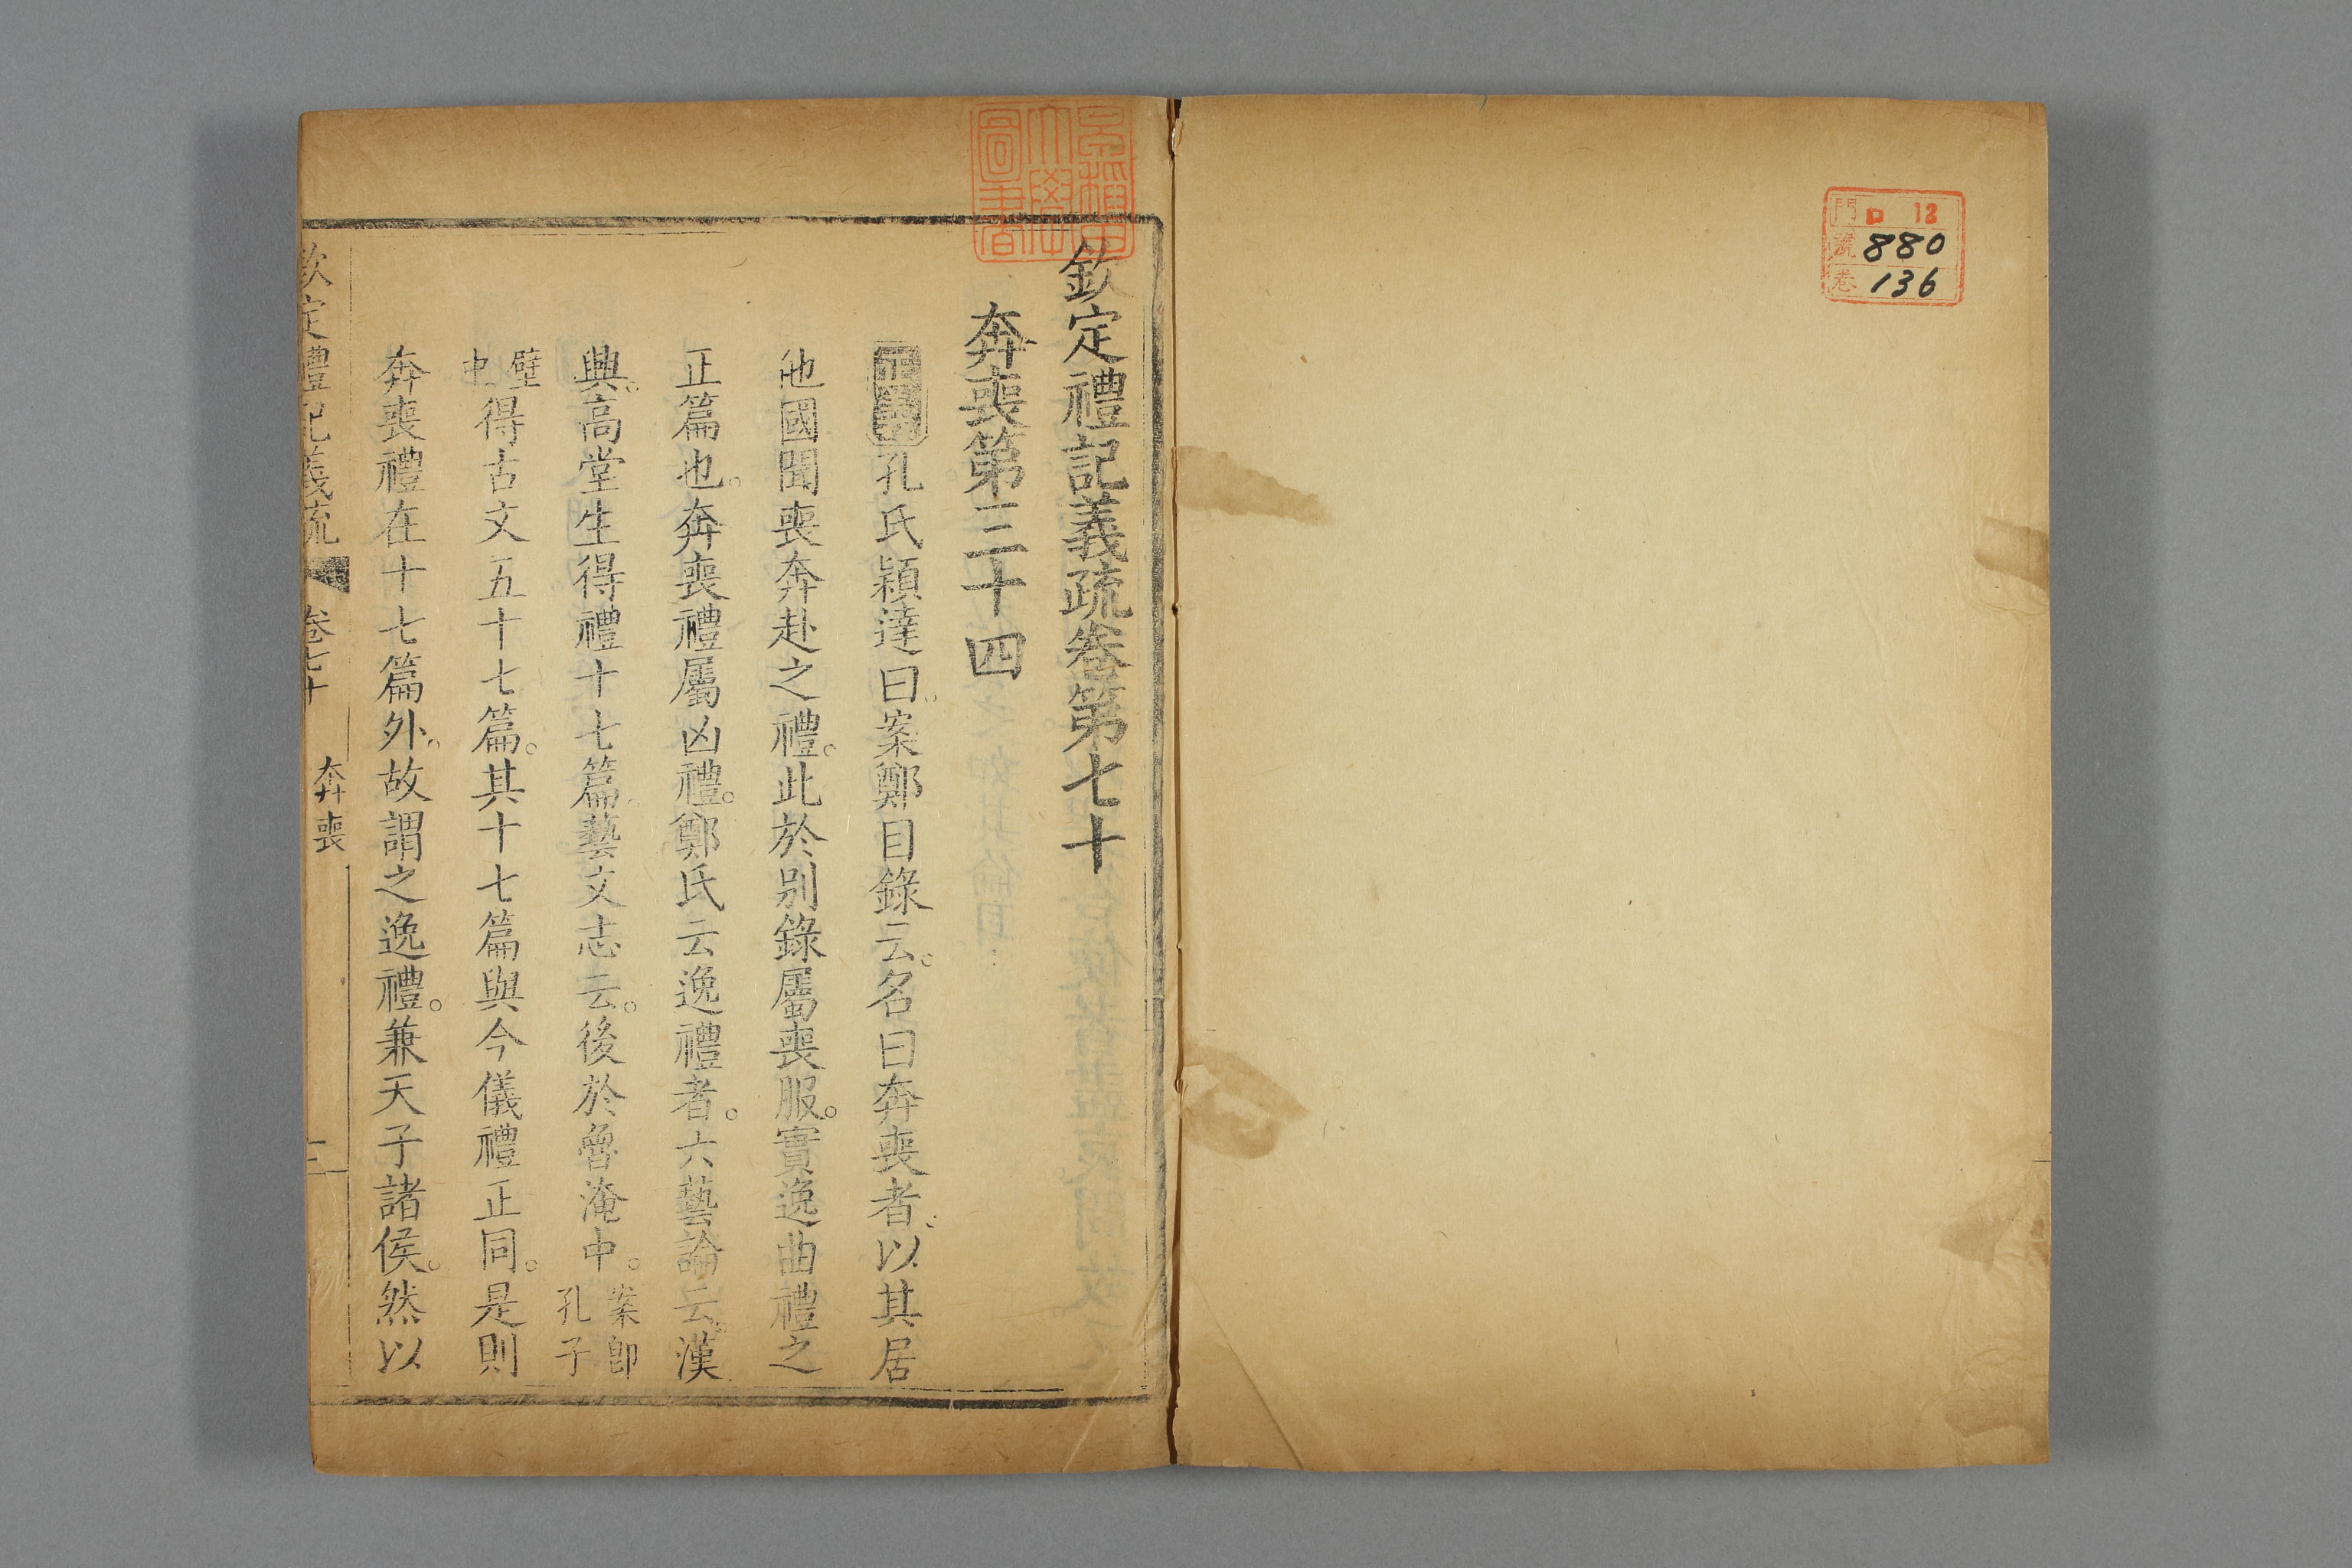 門 ロ 12
號 880
卷 136
早稲田
大學
圖書
欽定禮記義疏卷第七十
奔喪第三十四
正義 孔氏穎達曰案鄭目錄云。名曰奔喪者以其居
他國聞喪奔赴之禮。此於别錄屬喪服。實逸曲禮之
正篇也。奔喪禮屬凶禮。鄭氏云逸禮者。六藝論云。漢
興。高堂生得禮十七篇。藝文志云。後於魯淹中。案卽孔子
壁中得古文五十七篇。其十七篇與今儀禮正同。是則
奔喪禮在十七篇外。故謂之逸禮。兼天子諸侯。然以
欽定禮記義疏 卷七十 奔喪 一